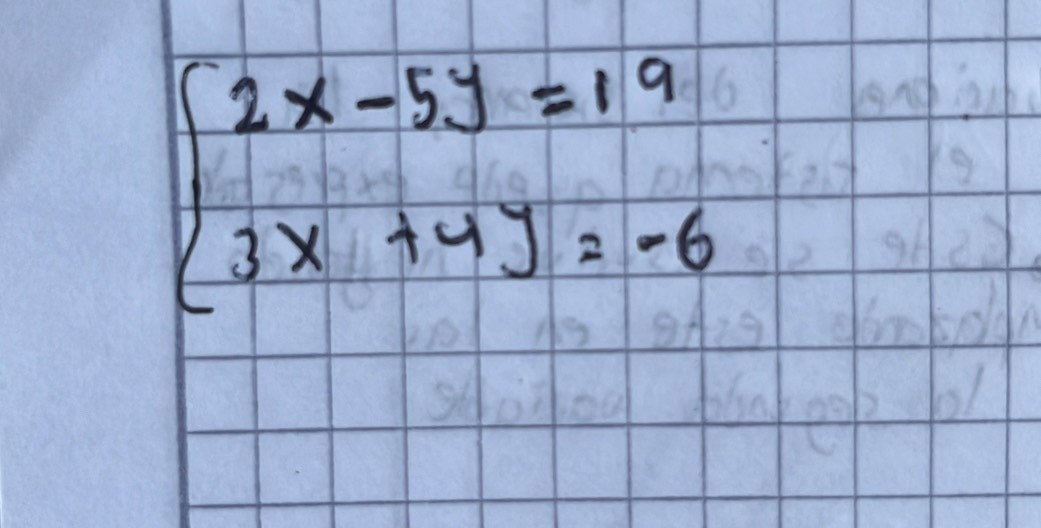 2x - 5y = 19
3x + 4y = -6